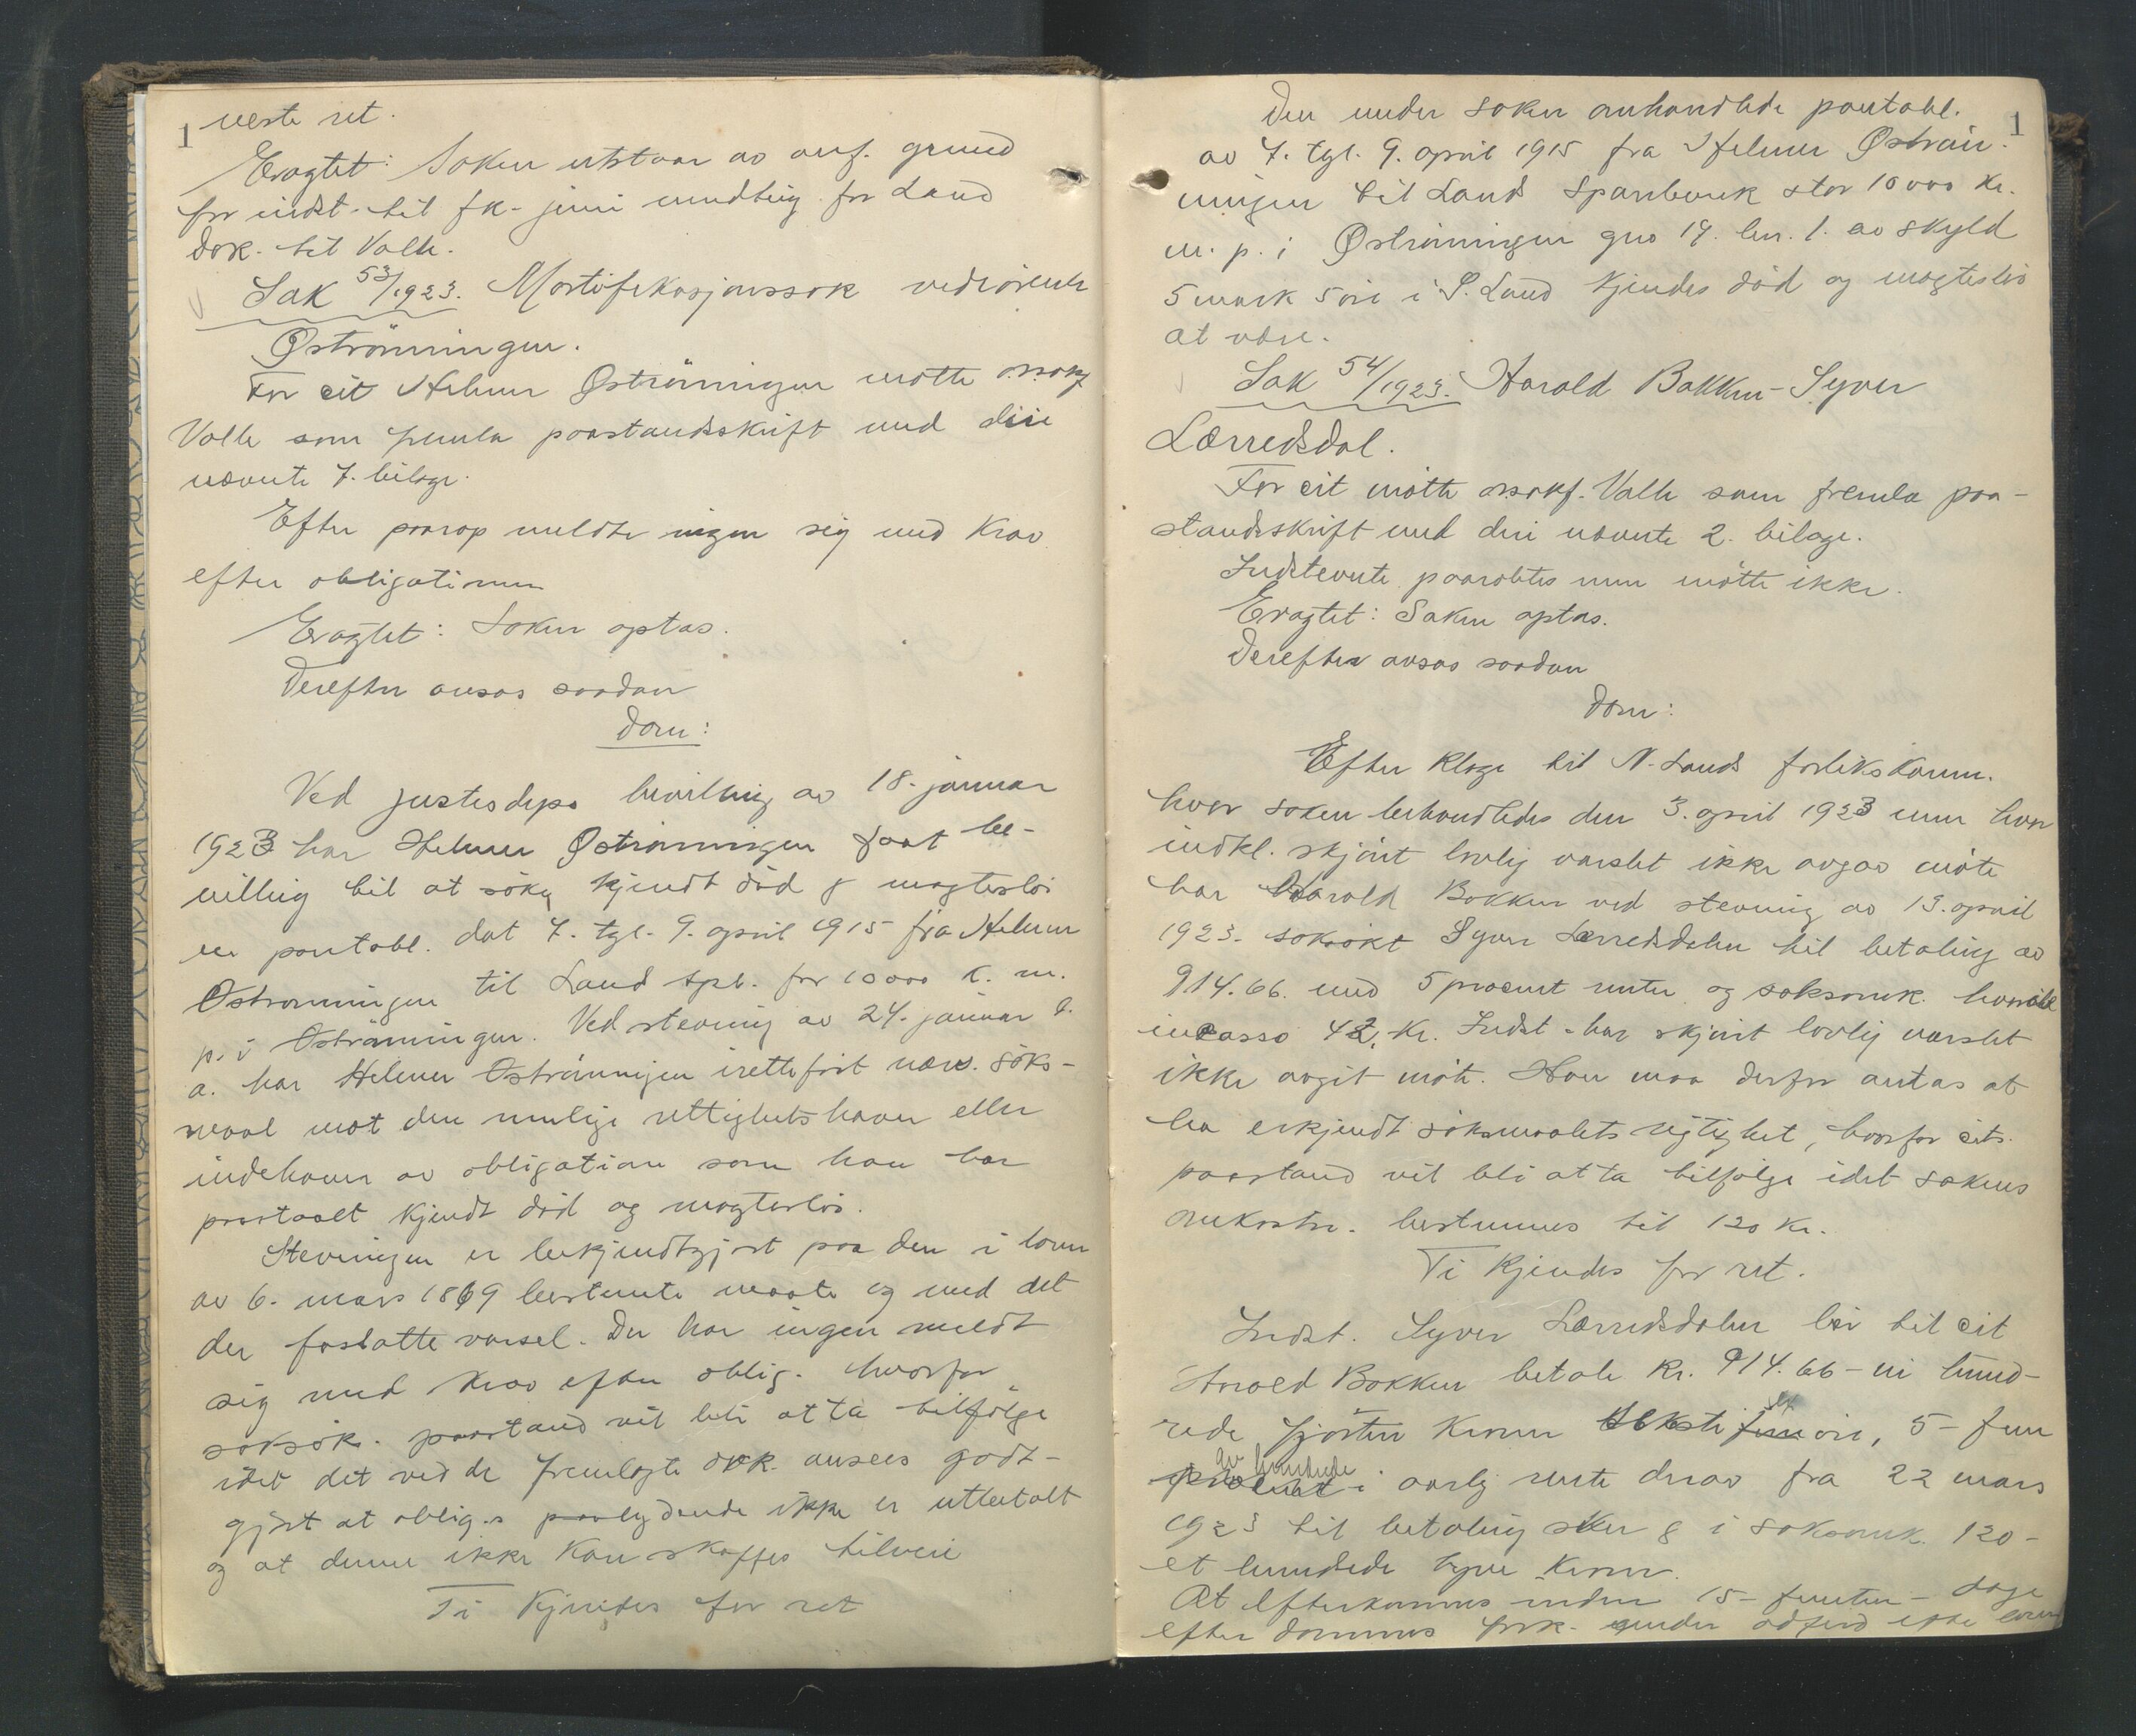 1 neste ret.
Eragtet: Saken utstaar av anf. grund
for indst. til fk. juni mndting for Land
dok. til Valle.
Sak 53/1923. Mortifikasjonssak vedrörende
Øströnningen.
For cit Helmer Øströnningen mötte orsakf
Valle som fremla paastandsskrift med deri
nævnte 7. bilage.
Efter paarop meldte ingen sig med krav
efter obligationen
Eragtet: Saken optas.
Derefter avsas saadan
Dom:
Ved justisdeps bevilling av 18. januar
1923 har Helmer Øströnningen faat be-
villing til at söke kjendt död & magteslös
en pantobl. dat 7. tgl. 9. april 1915 fra Helmer
Östrønningen til Land spb. for 10000 k. m.
p. i Öströnningen. Ved stevning av 24. januar d.
a. har Helmer Öströnningen irettefört nærv. söks-
maal mot den mulige rettighetshaver eller
indehaver av obligation som han har
paastaaet kjendt död og magteslös.
Stevningen er bekjendtgjort paa den i loven
av 6. mars 1869 bestemte maate og med det
der fastsatte varsel. Der har ingen meldt
sig med krav efter oblig. hvorfor
saksök. paastand vil bli at ta tilfölge
idet det ved de fremlagte dok. ansees godt-
gjort at oblig.s paalydende ikke er utbetalt
og at denne ikke kan skaffes tilveie
Ti kjendes for ret
1
Den under saken omhandlede pantobl.
av 7. tgl. 9. april 1915 fra Helmer Öströn-
ningen til Land Sparebank stor 10000 kr.
m. p. i Øströnningen gno 19. bn. 1. av skyld
5 mark 5 öre i S. Land kjendes död og magteslös
at være.
Sak 54/1923. Harald Bakken - Syver
Lærredsdal.
For cit mötte orsakf. Valle som fremla paa-
standsskrift med deri nævnte 2. bilage.
Indstevnte paaroptes men mötte ikke.
Eragtet: Saken optas.
Derefter avsas saadan
Dom:
Efter klage til N. Lands forlikskomm.
hvor saken behandledes den 3. april 1923 men hvor
indkl. skjönt lovlig varslet ikke avgav möte
har Harald Bakken ved stevning av 13. april
1923. saksökt Syver Lærredsdalen til betaling av
914.66. med 5 procent renter og saksomk. herunder
incasso 42, kr. Indst. har skjönt lovlig varslet
ikke avgit möte. Han maa derfor antas at
ha erkjendt söksmaalets rigtighet, hvorfor cits.
paastand vil bli at ta tilfölge idet sakens
omkostn. bestemmes til 120 kr.
Ti kjendes for ret.
Indst. Syver Lærredsdalen bör til cit
Harald Bakken betale kr. 914.66 - ni hund-
rede fjorten kroner seksti seks öre, 5 - fem
av hundrede i aarlig rente derav fra 22 mars
1923 til betaling sker & i saksomk. 120 -
et hundrede tyve kroner.
At efterkommes inden 15 - femten - dage
efter dommens fork. under adferd efter loven